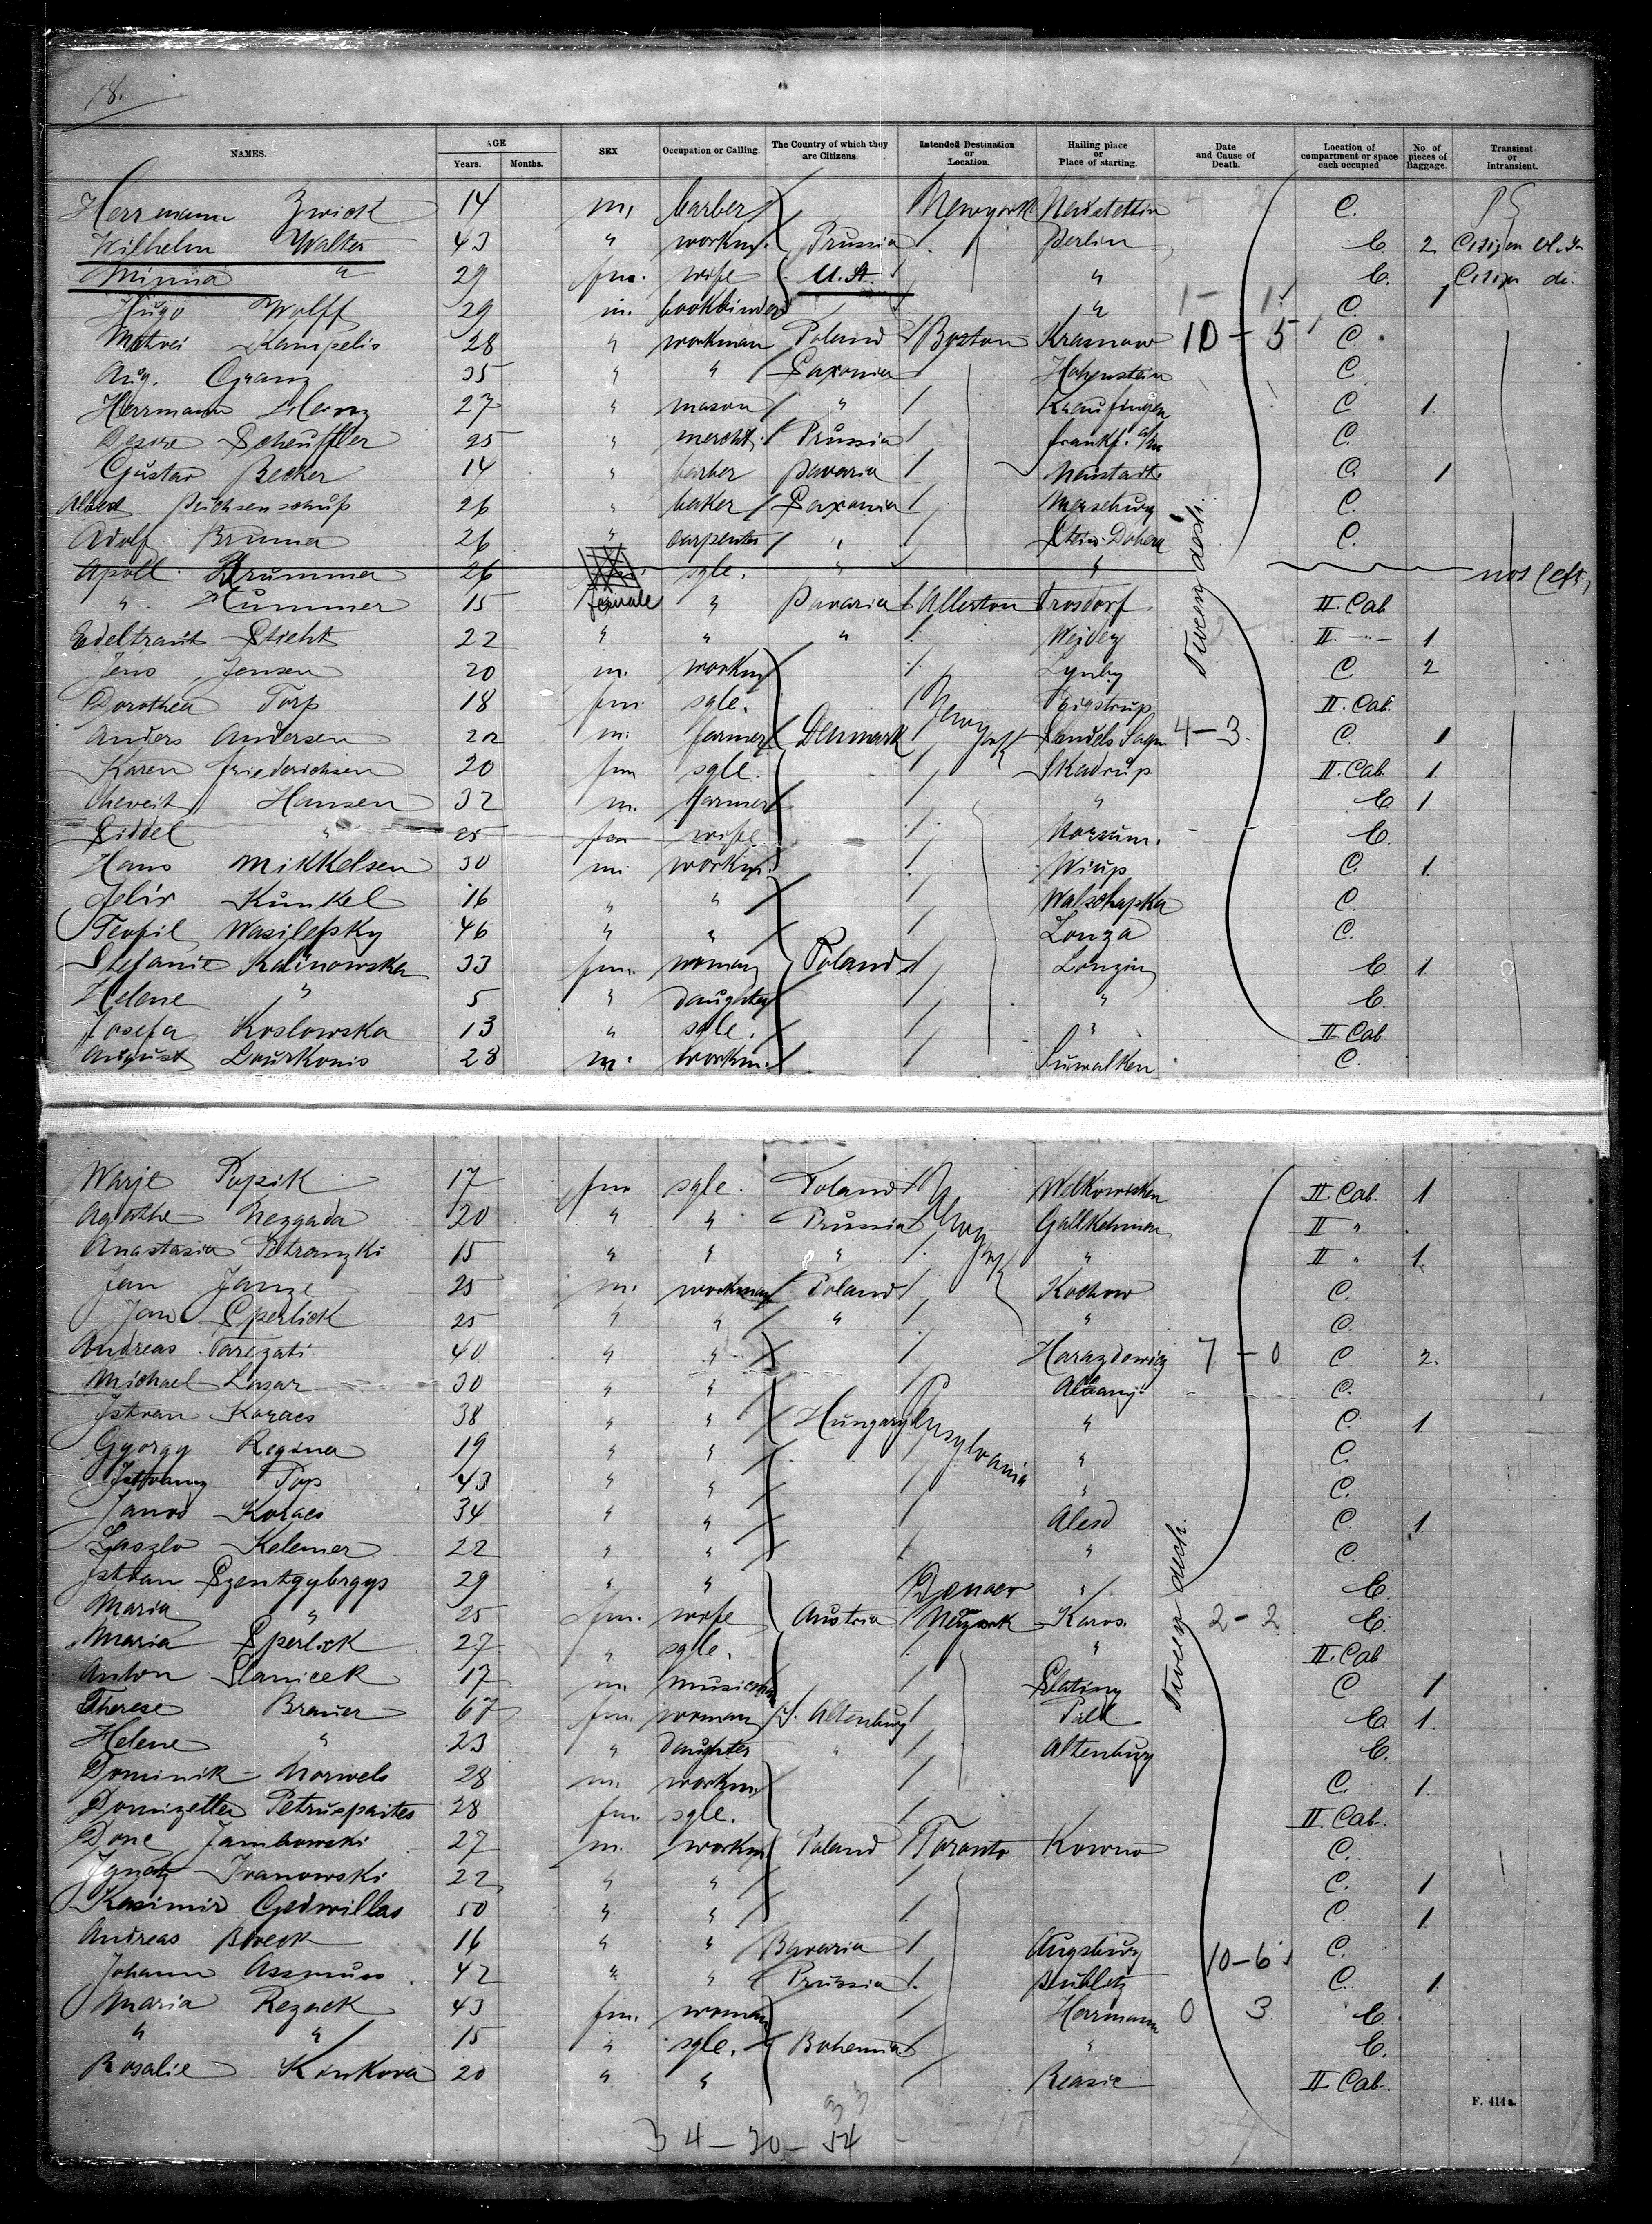 18.
NAMES. AGE Years. Months. SEX Occupation or Calling. The Country of which they are Citizens. Intended Destination or Location. Hailing place or Place of starting. Date and Cause of Death. Location of compartment or space each occupied No. of pieces of Baggage. Transient or Intransient.
Herrmann Zwickt 14 m. barber Newyork Neustettin C.
Wilhelm Walter 43 " workm. Prussia Berlin C 2 Citizen
Minna " 29 fm. wife U.St. " C. Citizen do.
Hugo Wolff 29 m. bookbinder " 1 - 1 C. 1
Motvei Kampelis 28 " workman Poland Boston Krasnow 10 - 5 C.
Aug. Granz 35 " " Saxonia Hohenstein C.
Herrmann Merz 27 " mason " Kaufungen C. 1.
Scheuffler 25 " mercht. Prussia Frankf. a/m C.
Gustav Becker 14 " barber Bavaria Neustadt C. 1
Albert 26 " baker Saxonia Merseburg C.
Adolf Brumma 26 " carpenter " C.
Apoll. Brumma 26 sgle. " " not left,
" Hummer 15 female " Bavaria Allerton Trosdorf II. Cab
Edeltraut Sticht 22 " " " II. -"- 1
Jens Jensen 20 m. workm Lynby C 2
Dorothea Torp 18 fm. sgle. Newyork II. Cab.
Anders Andersen 22 m. farmer Denmark 4 - 3. C. 1
Karen Friederichsen 20 fm sgle. Skadrup II. Cab. 1
Hansen 32 m. farmer " C 1
Siddel " 25 fm wife C.
Hans Mikkelsen 30 m. workm. C. 1.
Felix Kunkel 16 " " C.
Teofil Wasilefsky 46 " " Lonza C.
Stefanie Kalinowska 33 fm. woman Poland Lonzin C. 1.
Helene " 5 " daughter " C.
Josefa Koslowska 13 " sgle. " II Cab.
August Lourkonis 28 m. workm. Suwalken C.
Tween deck.
Warje Popsik 17 fm sgle. Poland Newyork Wilkowisken II Cab. 1.
Agathe Nezgada 20 " " Prussia Gallkehmen II " .
Anastasia Petranzki 15 " " " " II " 1.
Jan Janze 25 m. workman Poland Kochow C.
Jan Sperlick 25 " " " " C.
Andreas Tarezati 40 " " Harazdowicz 7 - 0 C. 2.
Michael Lasar 30 " " C.
Istvan Koracs 38 " " Hungary Pensylvania " C. 1
Gyorgy Regina 19 " " " C.
Pop 43 " " " C.
Janos Koracs 34 " " Alesd C. 1
Laszlo Kelemer 22 " " " C.
Istvan Szentgyörgys 29 " " Denver " C.
Maria " 25 fm. wife Austria Newyork Karos. 2 - 2 C.
Maria Sperlick 27 " sgle. " II. Cab
Anton Slanicek 17 m. musician Slatiny C. 1
Therese Brauer 67 fm. woman S. Altenburg C 1.
Helene " 23 " daughter " Altenburg C.
Dominik Norwels 28 m. workm. C. 1.
Domizella Petruspaites 28 fm. sgle. II Cab.
Done Jambowski 27 m. workm Poland Toronto Kowno C.
Ignatz Iwanowski 22 " " C. 1
Kasimir Gedwillas 50 " " C. 1.
Andreas Boveck 16 " " Bavaria Augsburg 10 - 6 C.
Johann Assmuss 42 " " Prussia Bublitz C. 1.
Maria Rezack 43 fm. woman Herrmann 0 3 C.
" " 15 " sgle. Bohemia " C.
Rosalie Konkova 20 " " II. Cab.
Tween deck.
33
34 - 20 - 54
F. 414 a.